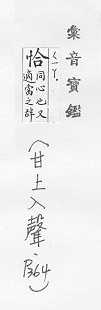 彙音寶鑑
ㄑㄧㄚ
恰
同心也又
適當之辭
(甘上入聲, P364)